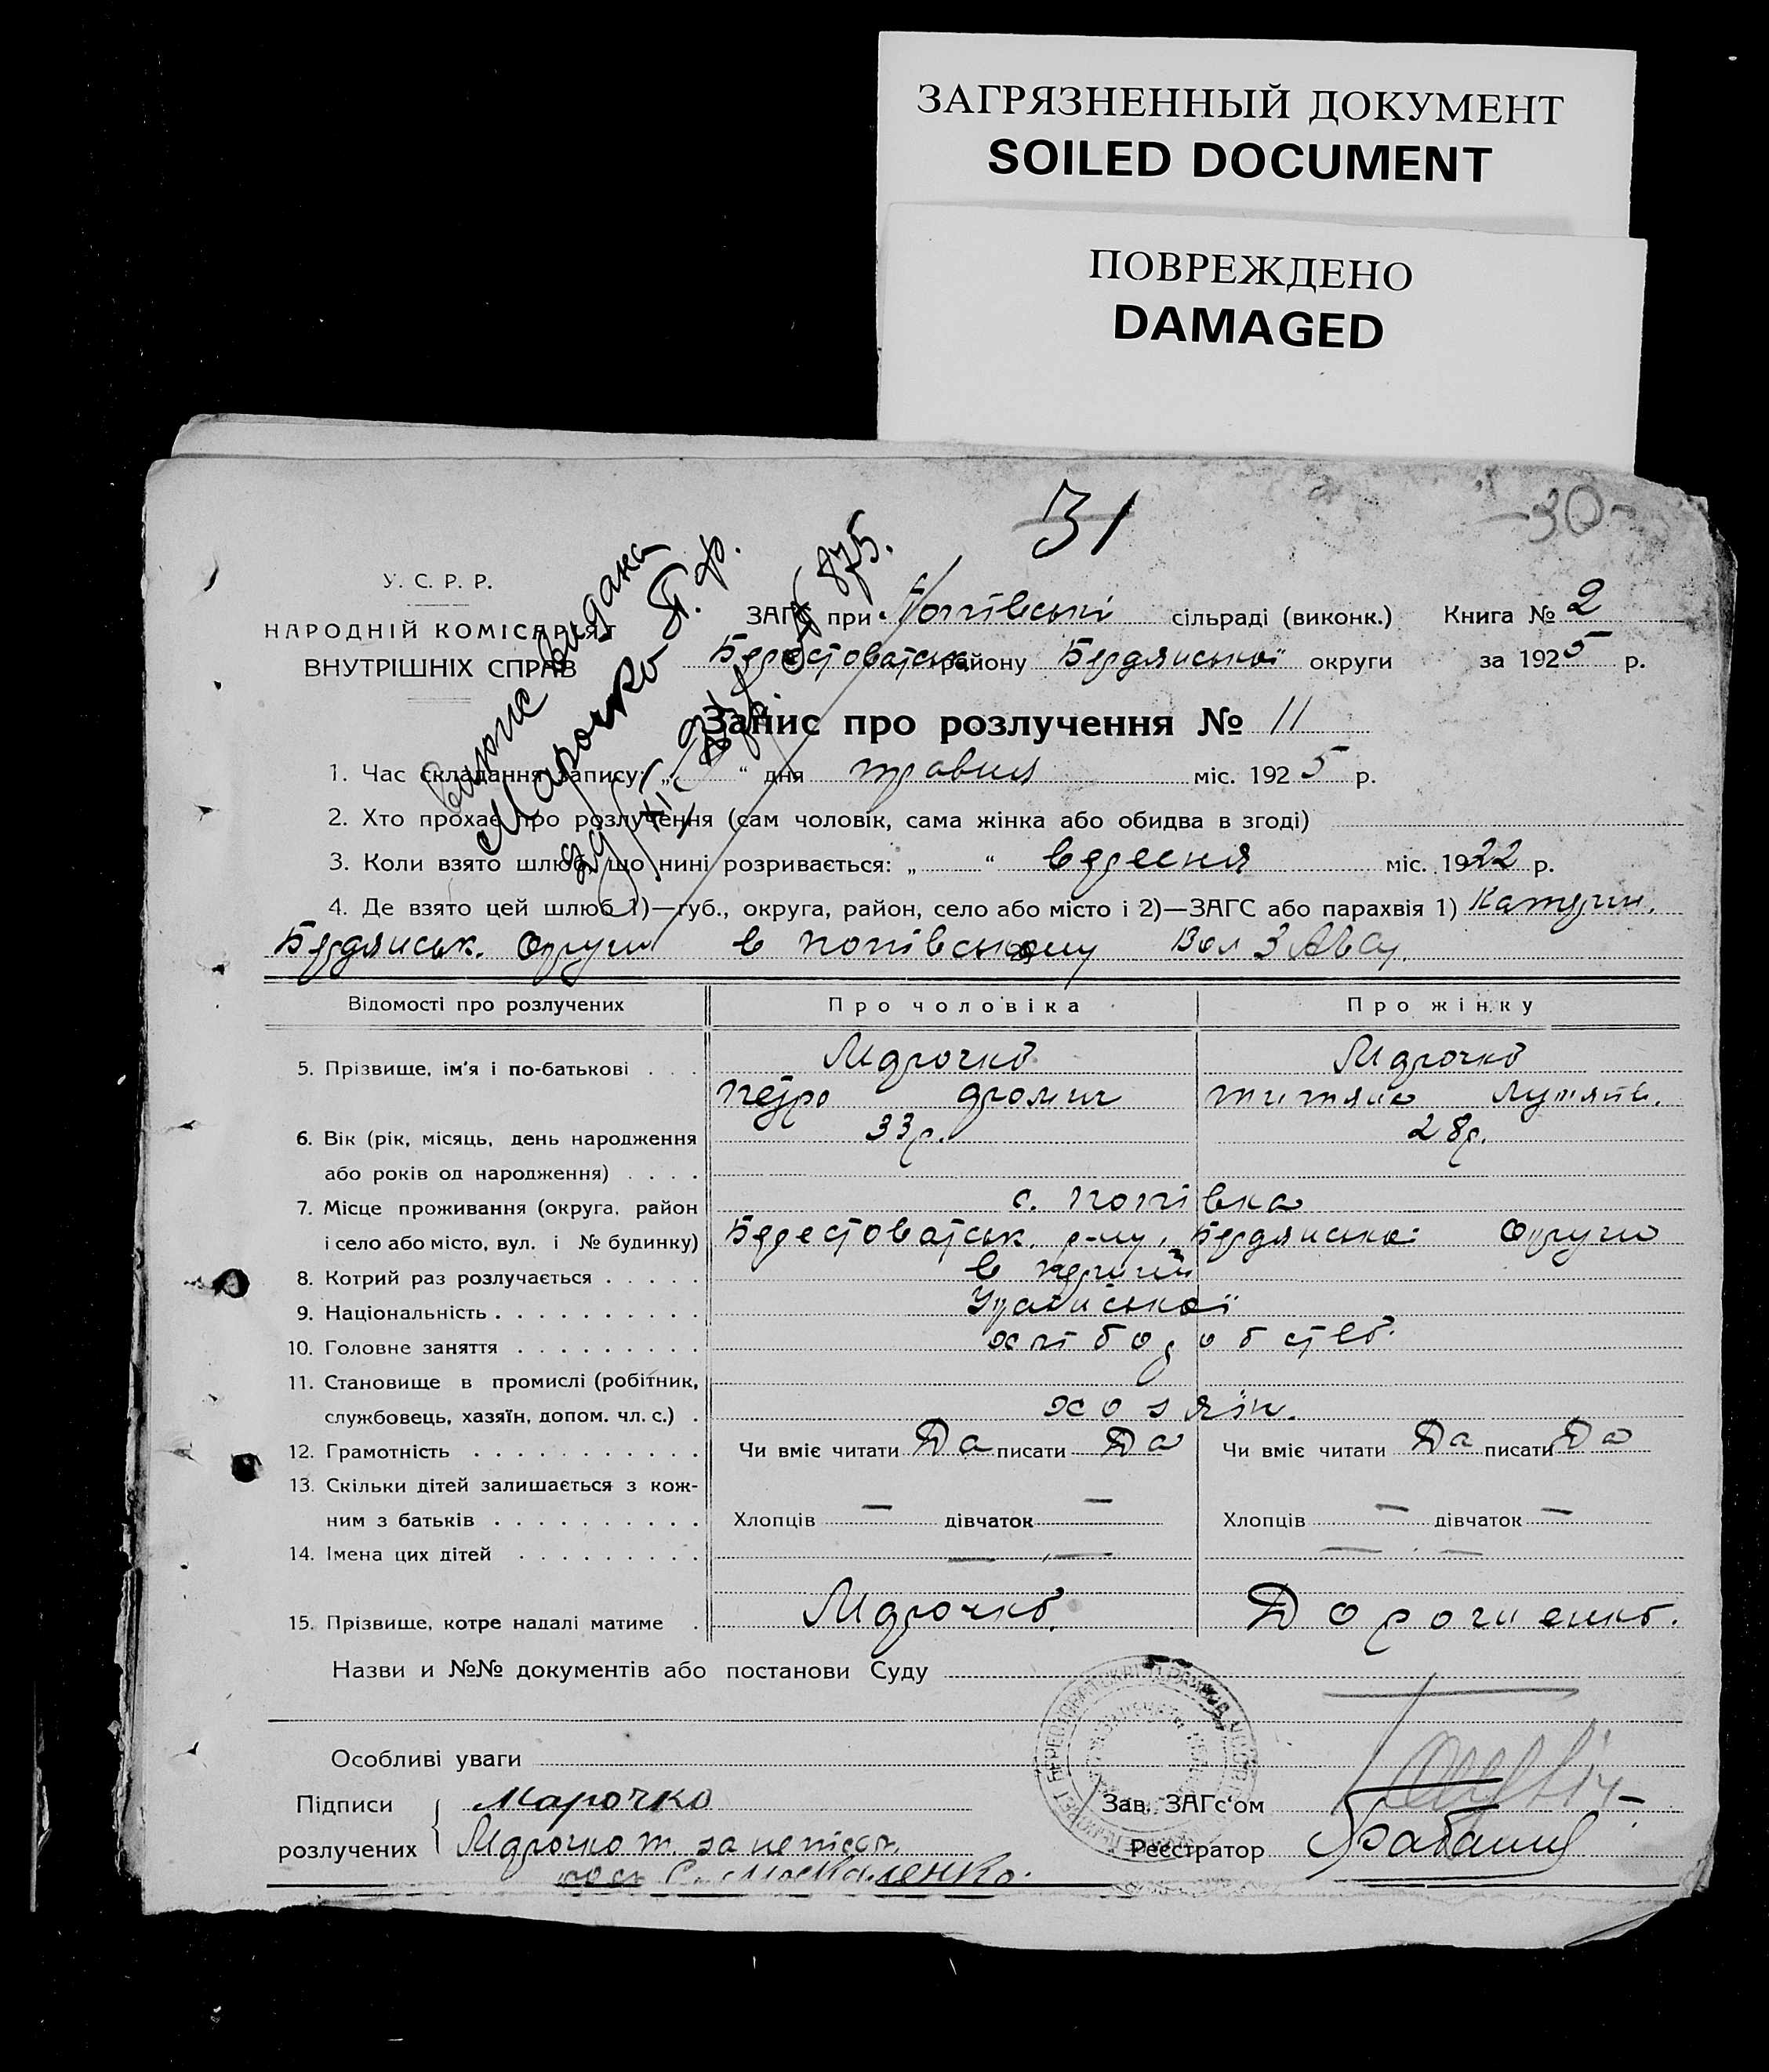 ЗАГРЯЗНЕННЫЙ ДОКУМЕНТ
SOILED DOCUMENT
ПОВРЕЖДЕНО
DAMAGED
31
-30-
У. С. Р. Р.
НАРОДНІЙ КОМІСАРІЯТ
ВНУТРІШНІХ СПРАВ
Випис видана
Марочко П. ф.
ЗАГС при Попівські сільраді (виконк.) Книга № 2
Берестоватськ району Бердянської округи за 1925 р.
Запис про розлучення № 11
1. Час складання запису: „ “ дня травня міс. 1925 р.
2. Хто прохає про розлучення (сам чоловік, сама жінка або обидва в згоді)
3. Коли взято шлюб, що нині розривається: „ “ вересня міс. 1922 р.
4. Де взято цей шлюб 1)—губ., округа, район, село або місто і 2)—ЗАГС або парахвія 1) Катерин.
Бердянськ. Округи в попівському Вол ЗАГСу.
Відомості про розлучених Про чоловіка Про жінку
5. Прізвище, ім'я і по-батькові . . . Марочко Марочко
Петро
6. Вік (рік, місяць, день народження 33р. 28р.
або років од народження) . . . .
7. Місце проживання (округа, район с. Попівка
і село або місто, вул. і № будинку) Берестоватськ. р-ну, Бердянської Округи
8. Котрий раз розлучається . . . . . в перший
9. Національність . . . . . . . . . . Української
10. Головне заняття . . . . . . . . . хліборобство.
11. Становище в промислі (робітник,
службовець, хазяїн, допом. чл. с.) . хозяїн.
12. Грамотність . . . . . . . . . . . Чи вміє читати Да писати Да Чи вміє читати Да писати Да
13. Скільки дітей залишається з кож-
ним з батьків . . . . . . . . . . Хлопців — дівчаток — Хлопців — дівчаток —
14. Імена цих дітей . . . . . . . . . — — — —
15. Прізвище, котре надалі матиме . Марочко. Дорошенко.
Назви и №№ документів або постанови Суду
Особливі уваги
Підписи Марочко Зав. ЗАГс'ом
розлучених Марочко т. за неписьм. Реєстратор
Москаленко.